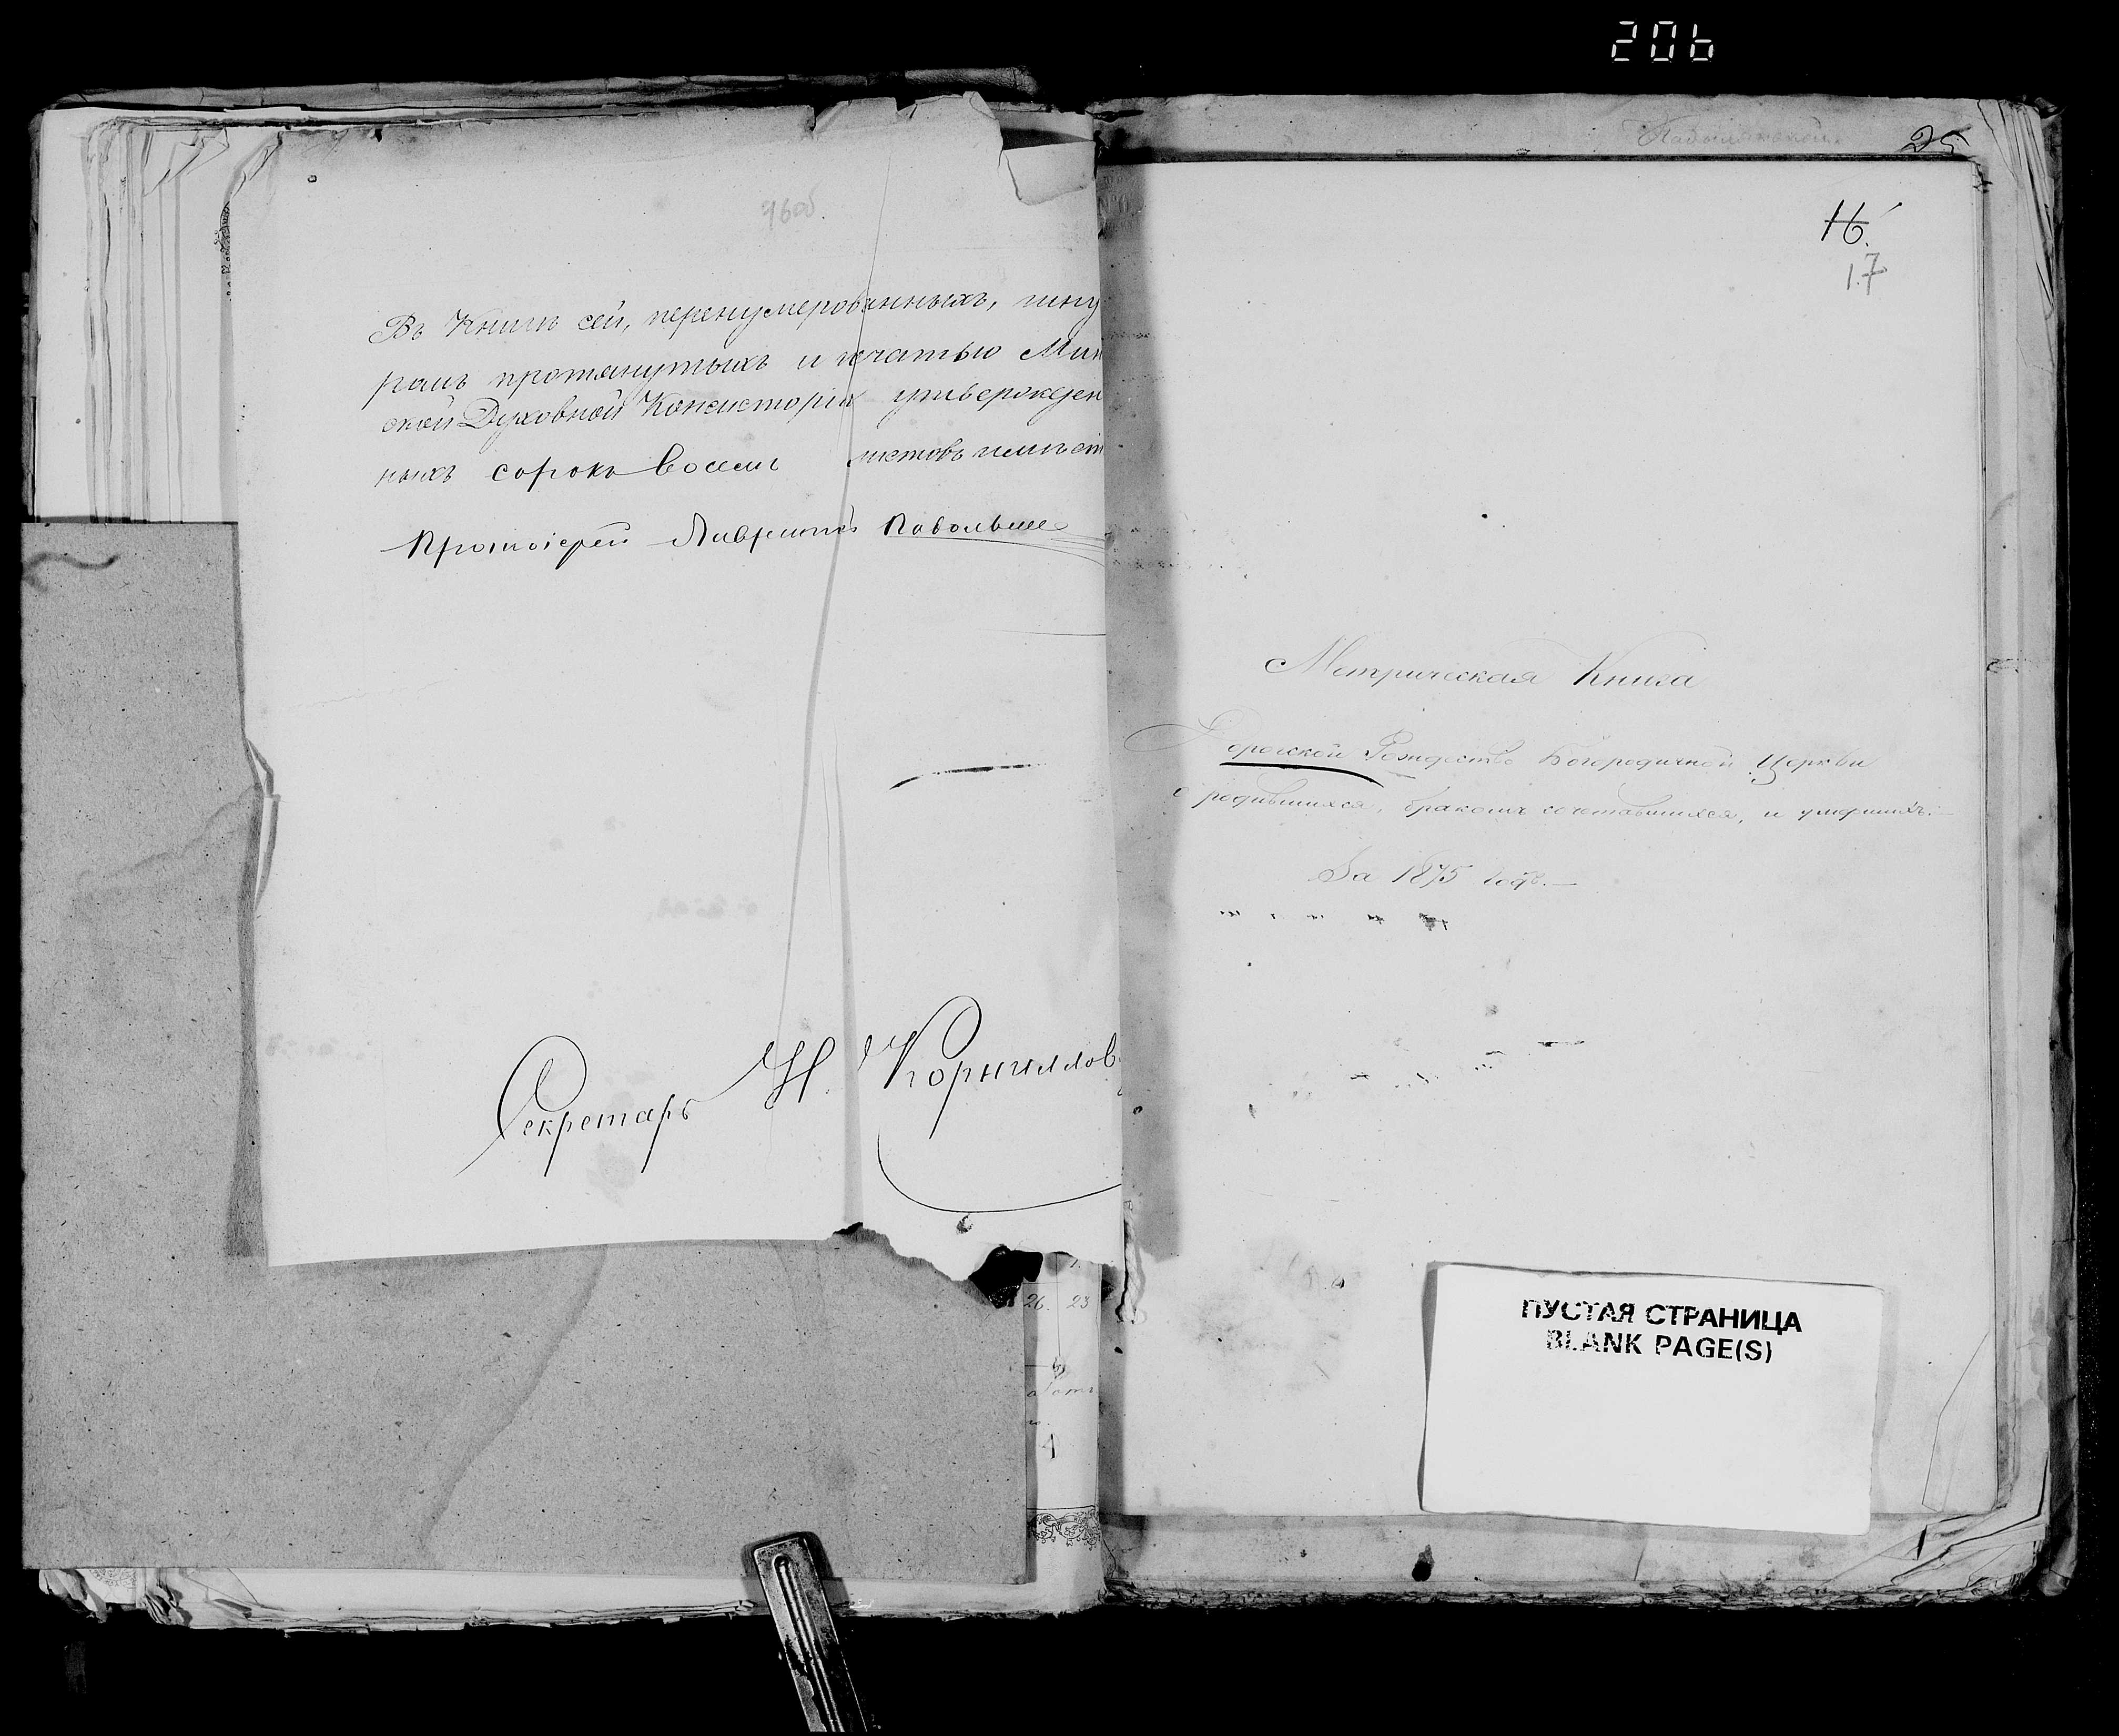 206
25
16.
17
96об.
Въ Книгѣ сей, перенумерованныхъ, шну
ромъ протянутыхъ и печатью Мин
ской Духовной Консисторіи утвержден
ныхъ сорокъ восемь листовъ имѣет
Протоіерей Лаврентій
Секретарь Н. Корниллов
Метрическая Книга
Рождество Богородичной Церкви
о родившихся, бракомъ сочетавшихся, и умершихъ.
За 1875 годъ.
26. 23
ПУСТАЯ СТРАНИЦА
BLANK PAGE(S)